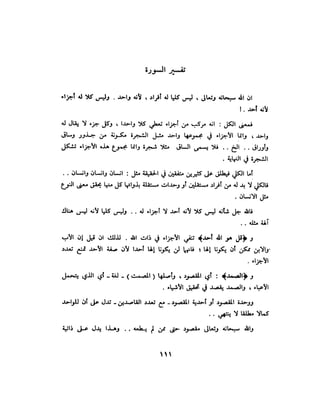 تفسير السورة
ان الله سبحانه وتعالى ، ليس كليا له أفراد ، لأنه واحد . وليس كلا له أجزاء
لأنه أحد . !
فمعنى الكل : انه مركب من أجزاء تعطي كلا واحدا ، وكل جزء لا يقال له
واحد ، وانما الأجزاء في مجموعها واحد مثل الشجرة مكونة من جذور وساق
وأوراق . . الخ . . فلا يسمى الساق مثلا شجرة وانما مجموع هذه الأجزاء تشكل
الشجرة في النهاية .
أما الكلي فيطلق على كثيرين متفقين في الحقيقة مثل : انسان وانسان وانسان . .
فالكلي لا بد له من أفراد مستقلين أو وحدات مستقلة بذواتها كل منها يحقق معنى النوع
مثل الانسان .
فالله جل شأنه ليس كلا لأنه أحد لا أجزاء له . . وليس كليا لأنه ليس هناك
آلهة مثله . .
و ﴿قل هو الله أحد﴾ تنفي الأجزاء في ذات الله . لذلك ان قيل إن الأب
والابن ممكن أن يكونا إلها ؛ فانهما لن يكونا إلها أحدا لأن صفة الأحد تمنع تعدد
الأجزاء .
و ﴿الصمد﴾ : أي المقصود ، وأصلها (المصمت) ـ لغة ـ أي الذي يتحمل
الأعباء ، والصمد يقصد في تحقيق الأشياء .
ووحدة المقصود أو أحدية المقصود ـ مع تعدد القاصدين ـ تدل على أن للواحد
كمالا مطلقا لا ينتهي . .
والله سبحانه وتعالى مقصود حتى ممن لم يطعه . . وهذا يدل على ذاتية
١١١